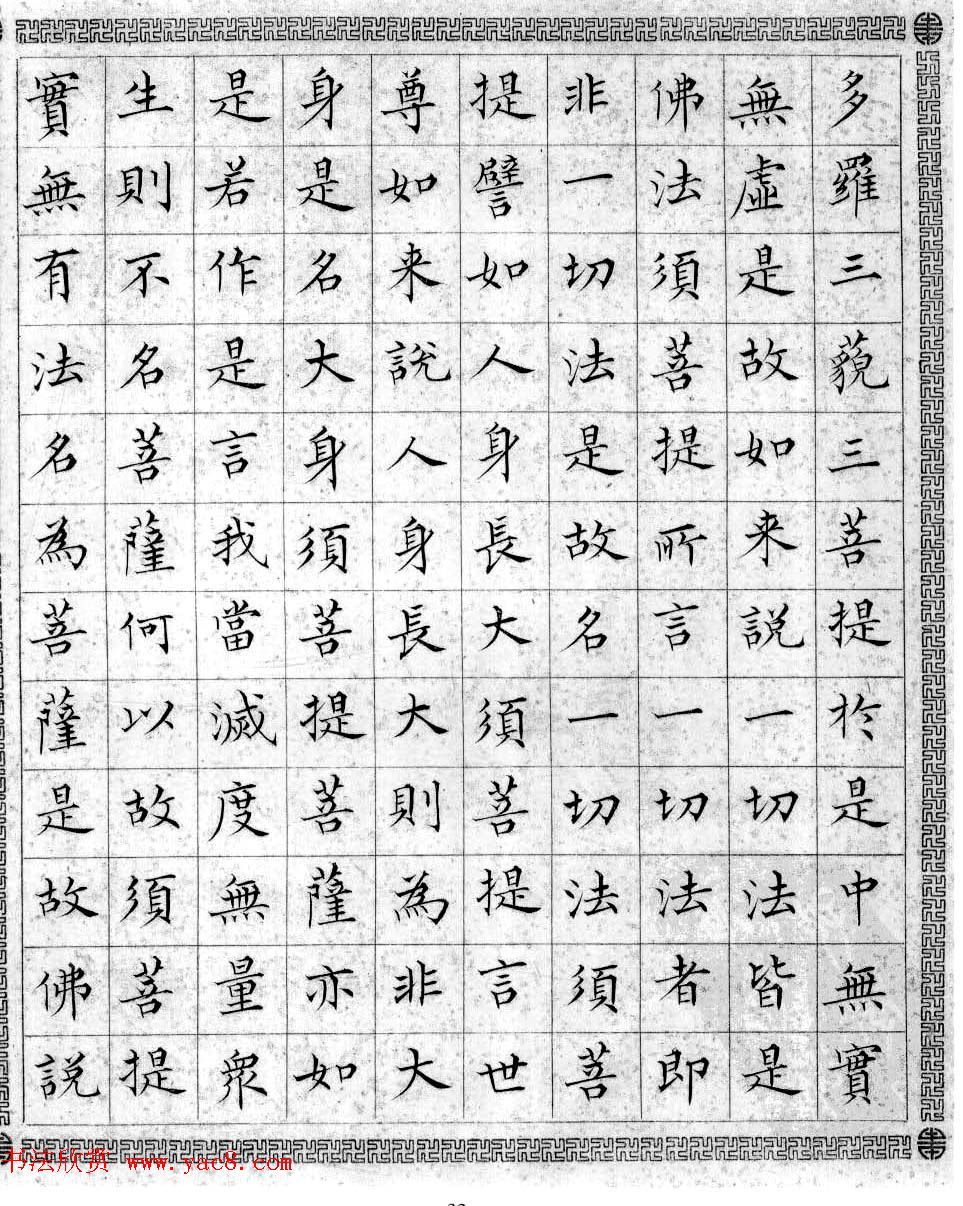 多羅三藐三菩提於是中無實
無虛是故如来說一切法皆是
佛法須菩提所言一切法者即
非一切法是故名一切法須菩
提譬如人身長大須菩提言世
尊如来說人身長大則為非大
身是名大身須菩提菩薩亦如
是若作是言我當滅度無量眾
生則不名菩薩何以故須菩提
實無有法名為菩薩是故佛說
书法欣赏 www.yac8.com